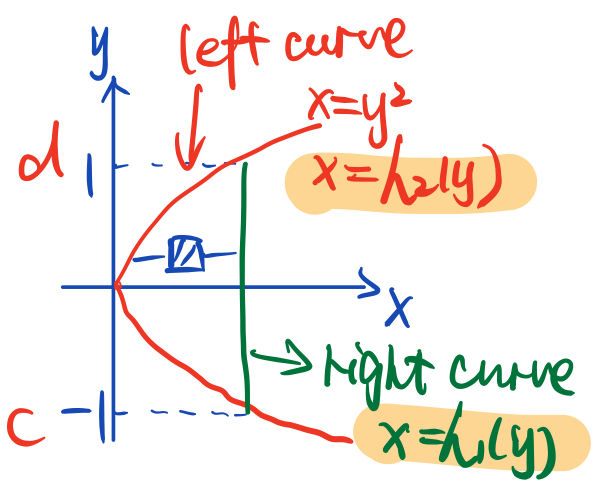 y
left curve
x=y²
d
1
x=h₂(y)
x
right curve
c
-1
x=h₁(y)